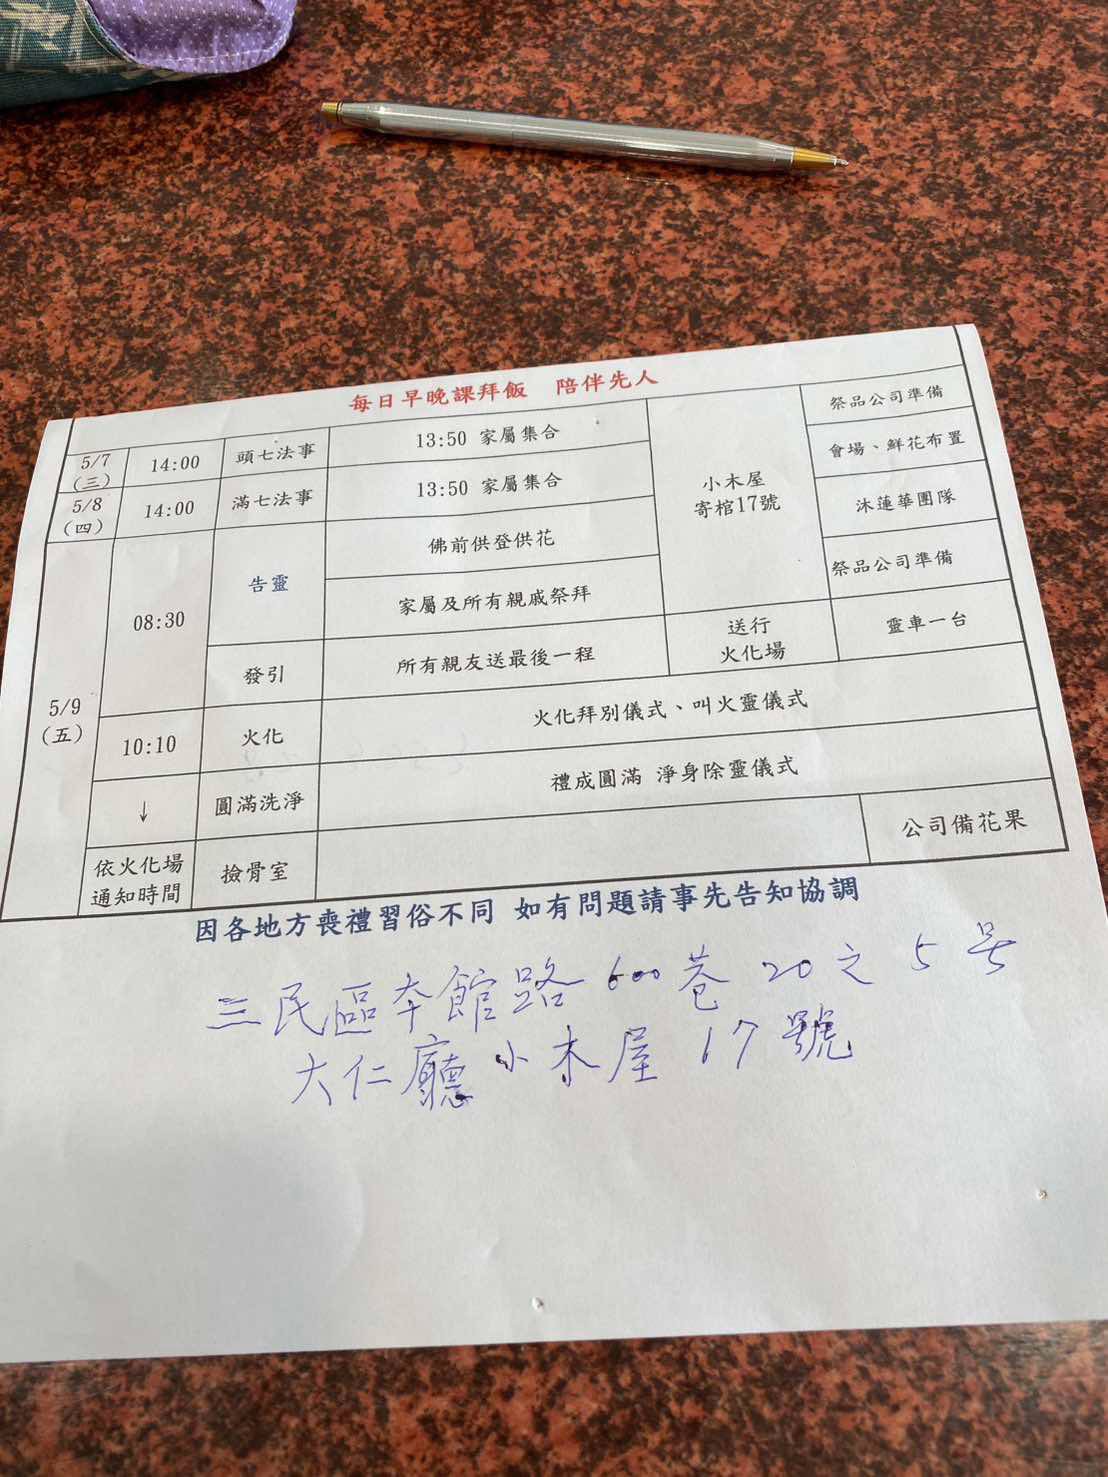 每日早晚課拜飯 陪伴先人
5/7
(三)
14:00
頭七法事
13:50 家屬集合
小木屋
寄棺17號
祭品公司準備
5/8
(四)
14:00
滿七法事
13:50 家屬集合
會場、鮮花布置
5/9
(五)
08:30
告靈
佛前供登供花
沐蓮華團隊
家屬及所有親戚祭拜
祭品公司準備
發引
所有親友送最後一程
送行
火化場
靈車一台
10:10
火化
火化拜別儀式、叫火靈儀式
↓
圓滿洗淨
禮成圓滿 淨身除靈儀式
依火化場
通知時間
撿骨室
公司備花果
因各地方喪禮習俗不同 如有問題請事先告知協調
三民區本館路600巷20之5号
大仁廳小木屋17號